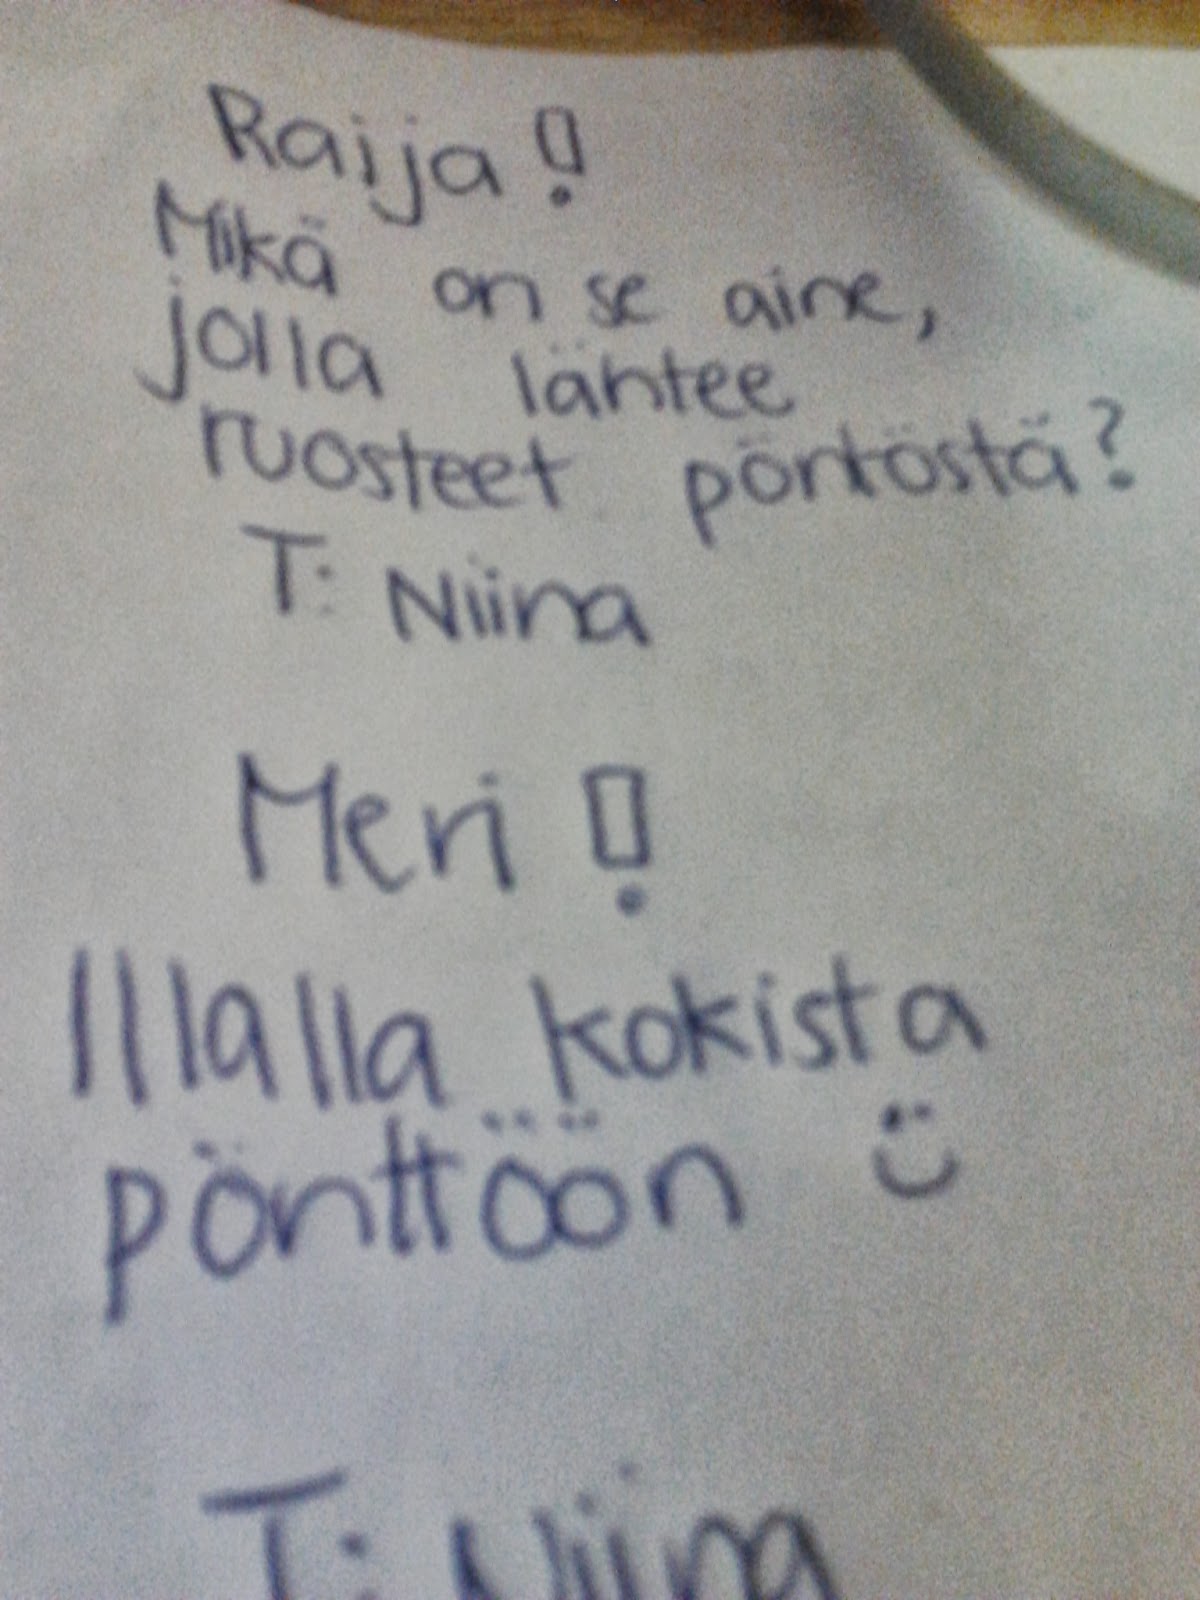 Raija!
Mikä on se aine,
jolla lähtee
ruosteet pöntöstä?
T: Niina
Meri!
Illalla kokista
pönttöön :)
T: Niina